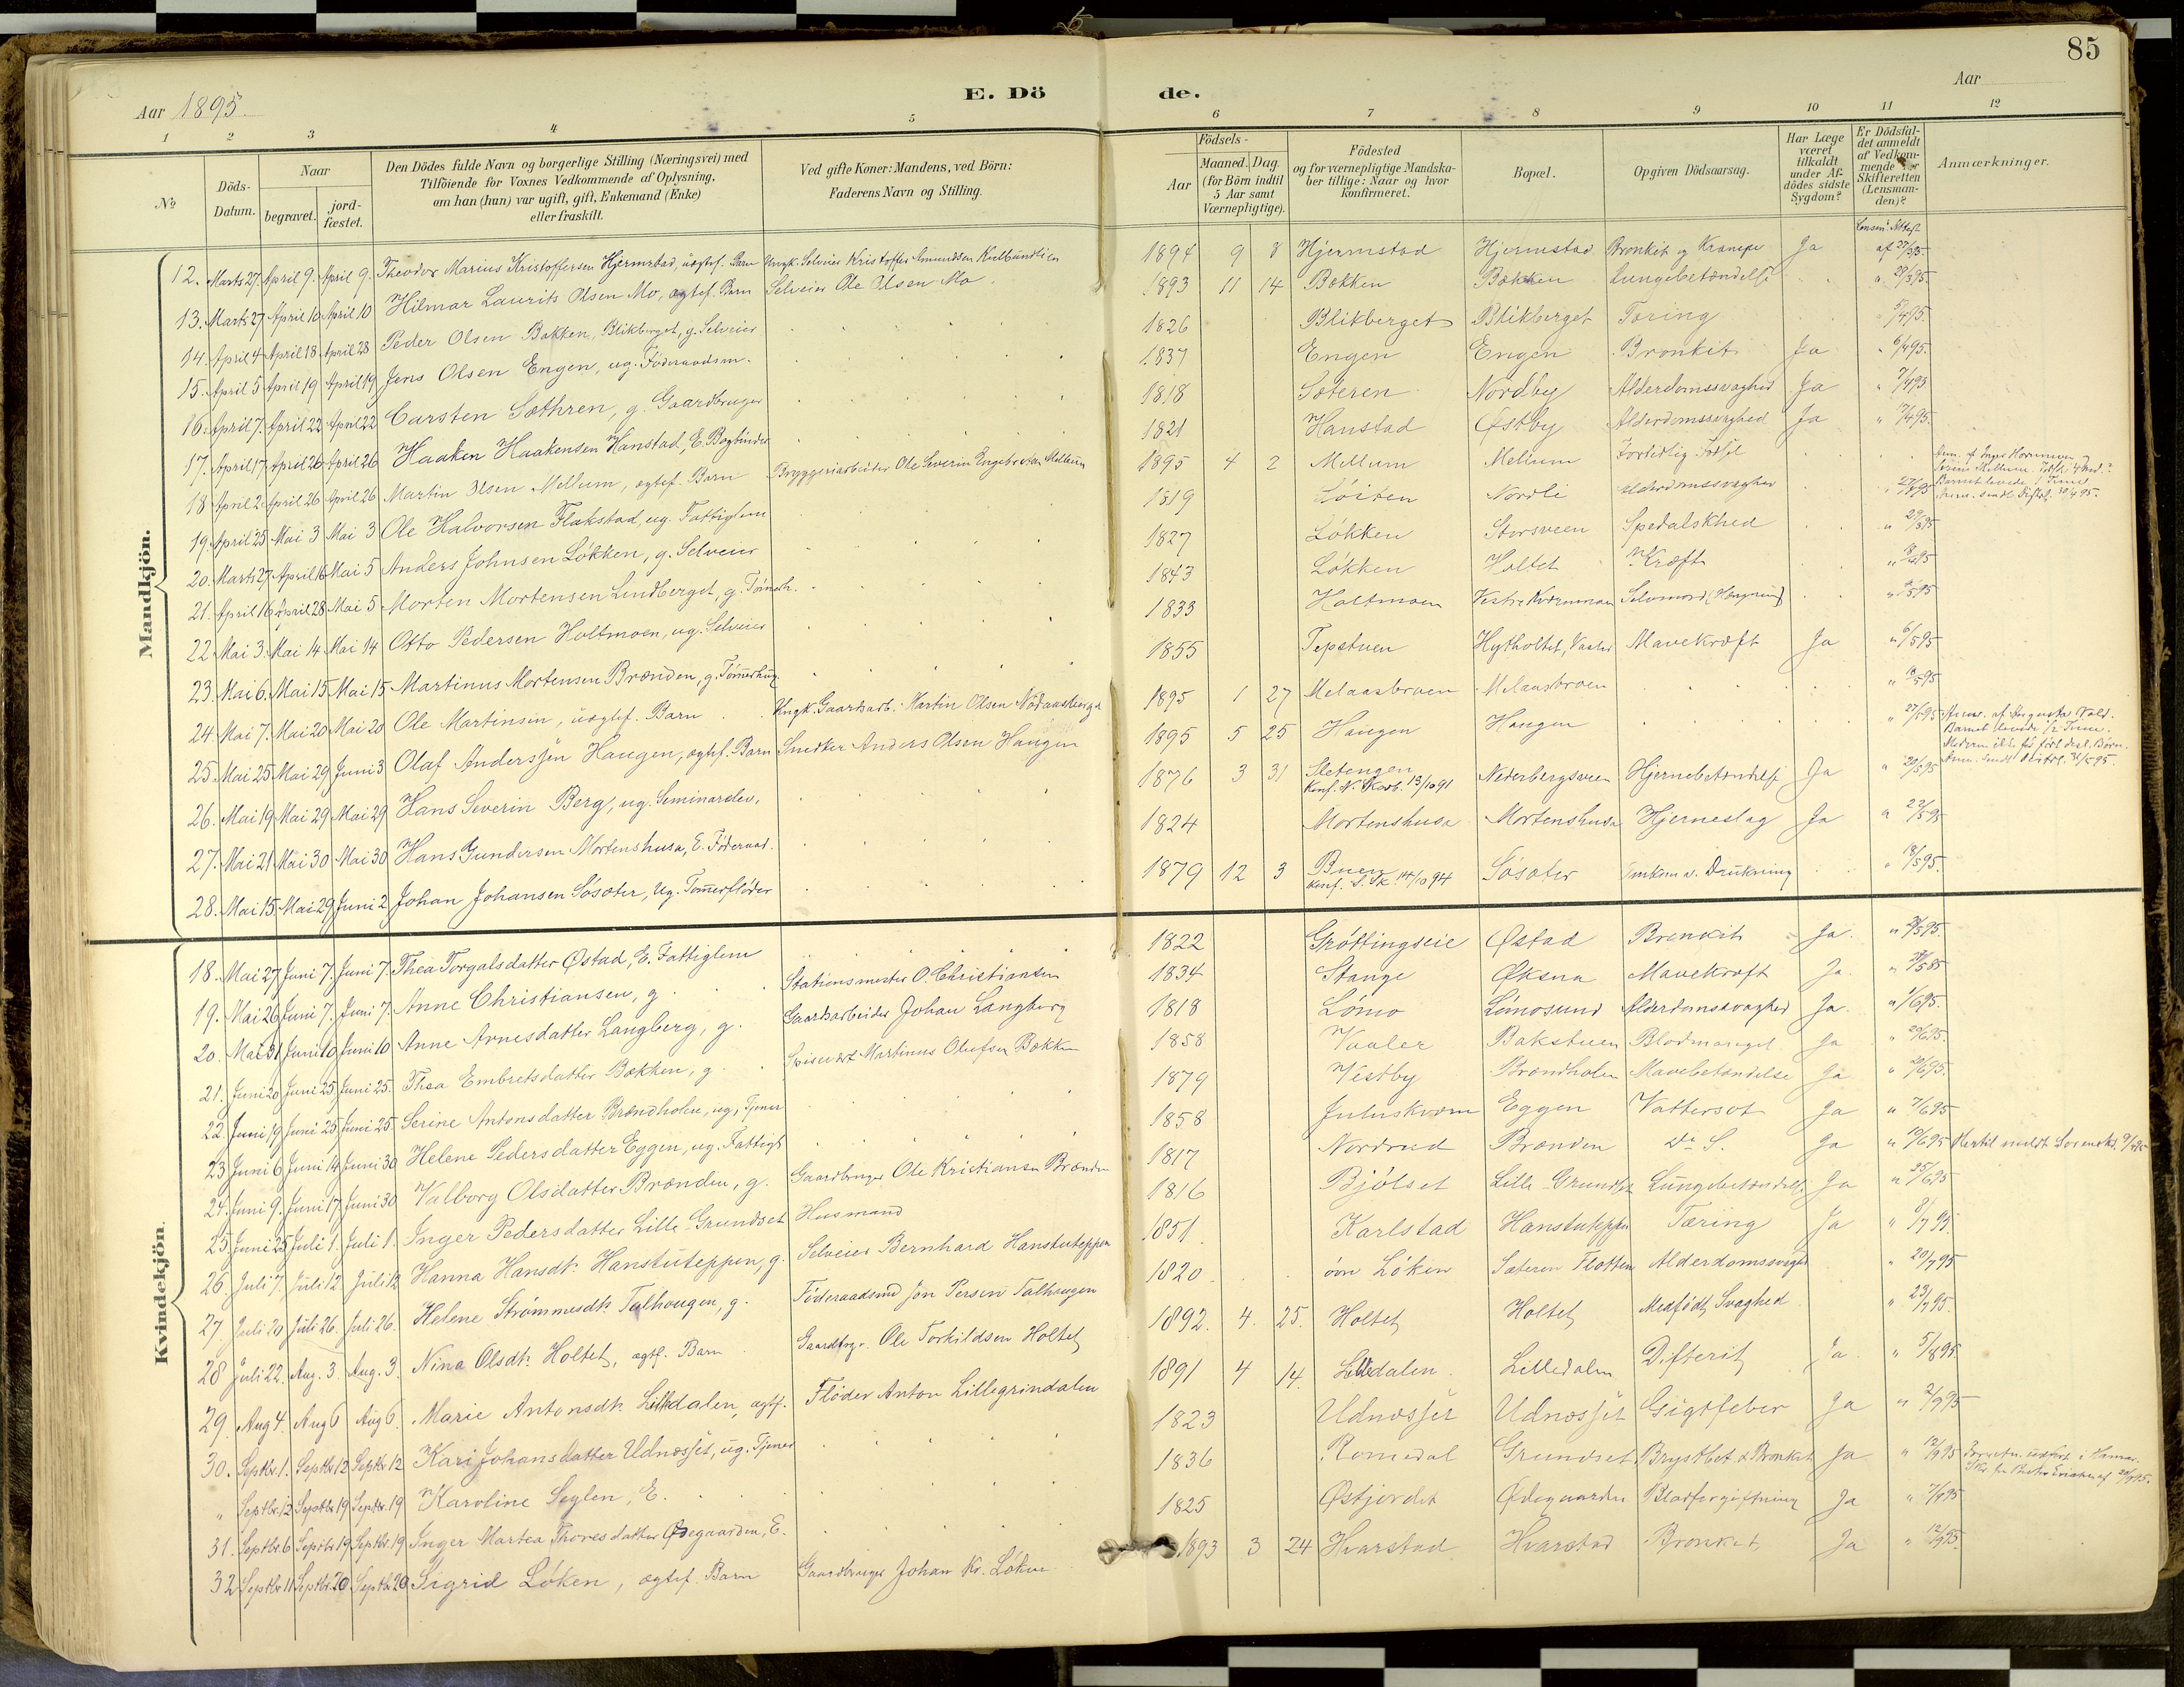 85
Aar 1895.
E. Dö de.
Aar
1 2 3 4 5 6 7 8 9 10 11 12
No
Döds-Datum.
Naar
begravet.
jord-fæstet.
Den Dödes fulde Navn og borgerlige Stilling (Næringsvei) med
Tilföiende for Voxnes Vedkommende af Oplysning,
om han (hun) var ugift, gift, Enkemand (Enke)
eller fraskilt.
Ved gifte Koner: Mandens, ved Börn:
Faderens Navn og Stilling.
Födsels-
Aar
Maaned. Dag.
(for Börn indtil
5 Aar samt
Værnepligtige).
Födested
og for værnepligtige Mandska-
ber tillige: Naar og hvor
konfirmeret.
Bopæl.
Opgiven Dödsaarsag.
Har Læge
været
tilkaldt
under Af-
dödes sidste
Sygdom?
Er Dödsfal-
det anmeldt
af Vedkom-
mende for
Skifteretten
(Lensman-
den)?
Anmærkninger.
Mandkjön.
Lensm. Attest
12. Marts 27. April 9. April 9. Theodor Marius Kristoffersen Hjermstad, uægtef. Barn Ungk. Selveier Kristoffer Amundsen 1894 9 8 Hjermstad Hjermstad Bronkit og Krampe Ja af 27/3 95.
13. Marts 27 April 10 April 10 Hilmar Laurits Olsen Mo, ægtef. Barn Selveier Ole Olsen Mo. 1893 11 14 Bakken Bakken Lungebetændelse " 29/3 95.
14. April 4 April 18 April 28 Peder Olsen Bakken, Blikberget, g. Selveier 1826 Blikberget Blikberget Tæring " 5/4 95.
15. April 5 April 19 April 19 Jens Olsen Engen, ug. Föderaadsm. 1837 Engen Engen Bronkit Ja " 6/4 95.
16. April 7. April 22 April 22 Carsten Sæthren, g. Gaardbruger 1818 Sæteren Nordby Alderdomssvaghed Ja " 7/4 95
17. April 17 April 26 April 26 Haaken Haakensen Hanstad, E. Bogbinder 1821 Hanstad Østby Alderdomssvaghed Ja " 17/4 95.
18 April 2 April 26 April 26 Martin Olsen Mellum, ægtef. Barn Bryggeriarbeider Ole Severin Engebretsen Mellum 1895 4 2 Mellum Mellum Fortidlig Födsel
Barnet levede 1 Time
19. April 25 Mai 3 Mai 3 Ole Halvorsen Flakstad, ug. Fattiglem 1819 Löiten Nordli Alderdomssvaghed " 27/4 95
20. Marts 27 April 16 Mai 5 Anders Johnsen Løkken, g. Selveier 1827 Løkken Storsveen Spedalskhed " 29/3 95
21. April 16 April 28 Mai 5 Morten Mortensen Lindberget, g. Tömmerh. 1843 Løkken Holtet Kræft " 18/4 95
22 Mai 3. Mai 14 Mai 14 Otto Pedersen Holtmoen, ug. Selveier 1833 Holtmoen Vestre Kværnmoen Selvmord (Hængning)
23. Mai 6. Mai 15 Mai 15 Martinus Mortensen Brænden, g. Tömmerhug. 1855 Tepstuen Hytholtet, Vaaler Mavekræft Ja " 6/5 95
24. Mai 7. Mai 20 Mai 20 Ole Martinsen, uægtef. Barn Ungk. Gaardsarb. Martin Olsen 1895 1 27 Melaasbraen Melaasbroen
25. Mai 25 Mai 29 Juni 3 Olaf Anderssen Haugen, ægtef. Barn Snedker Anders Olsen Haugen 1895 5 25 Haugen Haugen " 27/5 95
Barnet levede 1/2 Time.
26. Mai 19 Mai 29 Mai 29 Hans Severin Berg, ug. Seminarelev. 1876 3 31 Sletengen Konf. N. 13/10 91 Nederbergsveen Hjernebetændelse Ja " 20/5 95
27. Mai 21 Mai 30 Mai 30 Hans Gundersen Mortenshusa, E. Föderaad. 1824 Mortenshusa Mortenshusa Hjerneslag Ja " 22/5 95
28. Mai 15 Mai 29 Juni 2 Johan Johansen Søsæter, ug. Tömmerflöder 1879 12 3 Buen Konf. 14/10 94 Søsæter Omkom v. Drukning " 18/5 95.
Kvindekjön.
18. Mai 27 Juni 7. Juni 7. Thea Torgalsdatter Østad, E. Fattiglem 1822 Grøttingseie Østad Bronkit Ja. " 28/5 95.
19. Mai 26 Juni 7. Juni 7. Anne Christiansen, g Stationsmester O. Christiansen 1834 Stange Øksna Mavekræft Ja
20. Mai 31 Juni 10 Juni 10 Anne Arnesdatter Langberg, g. Gaardsarbeider Johan Langberg 1818 Lømo Lømosund Alderdomssvaghed Ja. " 1/6 95.
21. Juni 20 Juni 25 Juni 25 Thea Embretsdatter Bakken, g. Martinus Olufsen Bakken 1858 Vaaler Bakstuen Blodmangel Ja " 20/6 95.
22. Juni 19 Juni 25 Juni 25 Serine Antonsdatter Brændholen, ug. Tjener 1879 Vestby Brændholen Mavebetændelse Ja " 20/6 95.
23 Juni 6 Juni 14 Juni 30 Helene Pedersdatter Eggen, ug. Fattigl 1858 Juluskværn Eggen Vattersot Ja " 7/6 95
24. Juni 9. Juni 17 Juni 30 Valborg Olsdatter Brænden, g. Gaardbruger Ole Kristiansen Brænden 1817 Nordrud Brænden Do S. Ja " 10/6 95
25 Juni 25 Juli 1. Juli 1. Inger Pedersdatter Lille-Grundset Husmand 1816 Bjølset Lille-Grundset Lungebetændelse Ja " 25/6 95
26. Juli 7. Juli 12. Juli 12 Hanna Hansdtr. Hanstuteppen, g. Selveier Bernhard Hanstuteppen 1851 Karlstad Hanstuteppen Tæring Ja " 8/7 95.
27. Juli 20 Juli 26. Juli 26. Helene Strømmesdtr. Talhaugen, g. Föderaadsmd Jon Persen Talhaugen 1820 övre Løken Sæteren Flotten Alderdomssvaghed " 20/7 95
28 Juli 22. Aug. 3 Aug. 3. Nina Olsdtr. Holtet, ægtf. Barn Gaardbrgr. Ole Torkildsen Holtet 1892. 4. 25. Holtet Holtet Medfødt Svaghed " 23/7 95.
29. Aug 4. Aug 6 Aug 6. Marie Antonsdtr. Lilledalen, ægtf. Flöder Anton Lillegrindalen 1891 4 14. Lilledalen Lilledalen Difterit Ja " 5/8 95
30. Septbr. 1. Septbr 12 Septbr 12 Kari Johansdatter Udnæsset, ug. Tjener 1823 Udnæsset Udnæsset Gigtfeber Ja " 2/9 95
" Septbr. 12 Septbr 19 Septbr. 19 Karoline Seglen, E. 1836 Romedal Grundset Brystbet. & Bronkit Ja " 12/9 95
31. Septbr. 6 Septbr 19 Septbr. 19 Inger Martea Thoresdatter Ødegaarden, E. 1825 Østjordet Ødegaarden Blodforgiftning Ja " 7/9 95
32 Septbr. 11 Septbr. 20 Septbr 20 Sigrid Løken, ægtef. Barn Gaardbruger Johan Kr. Løken 1893 3 24 Hvarstad Hvarstad Bronkit Ja " 12/9 95.